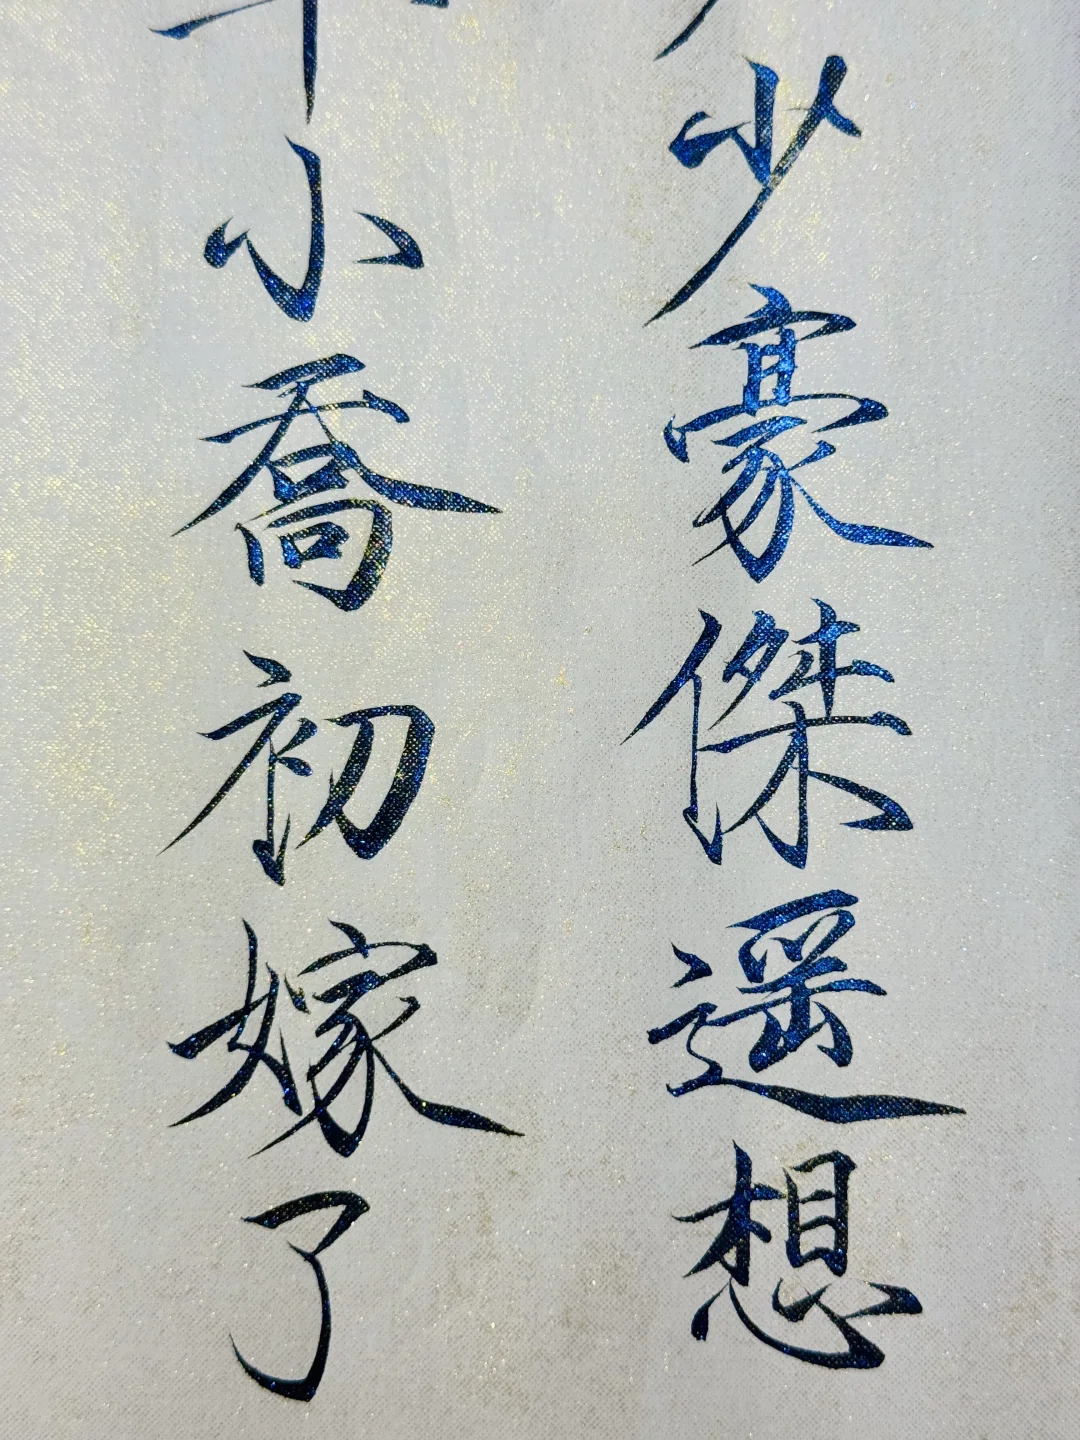 少豪傑遥想
小喬初嫁了